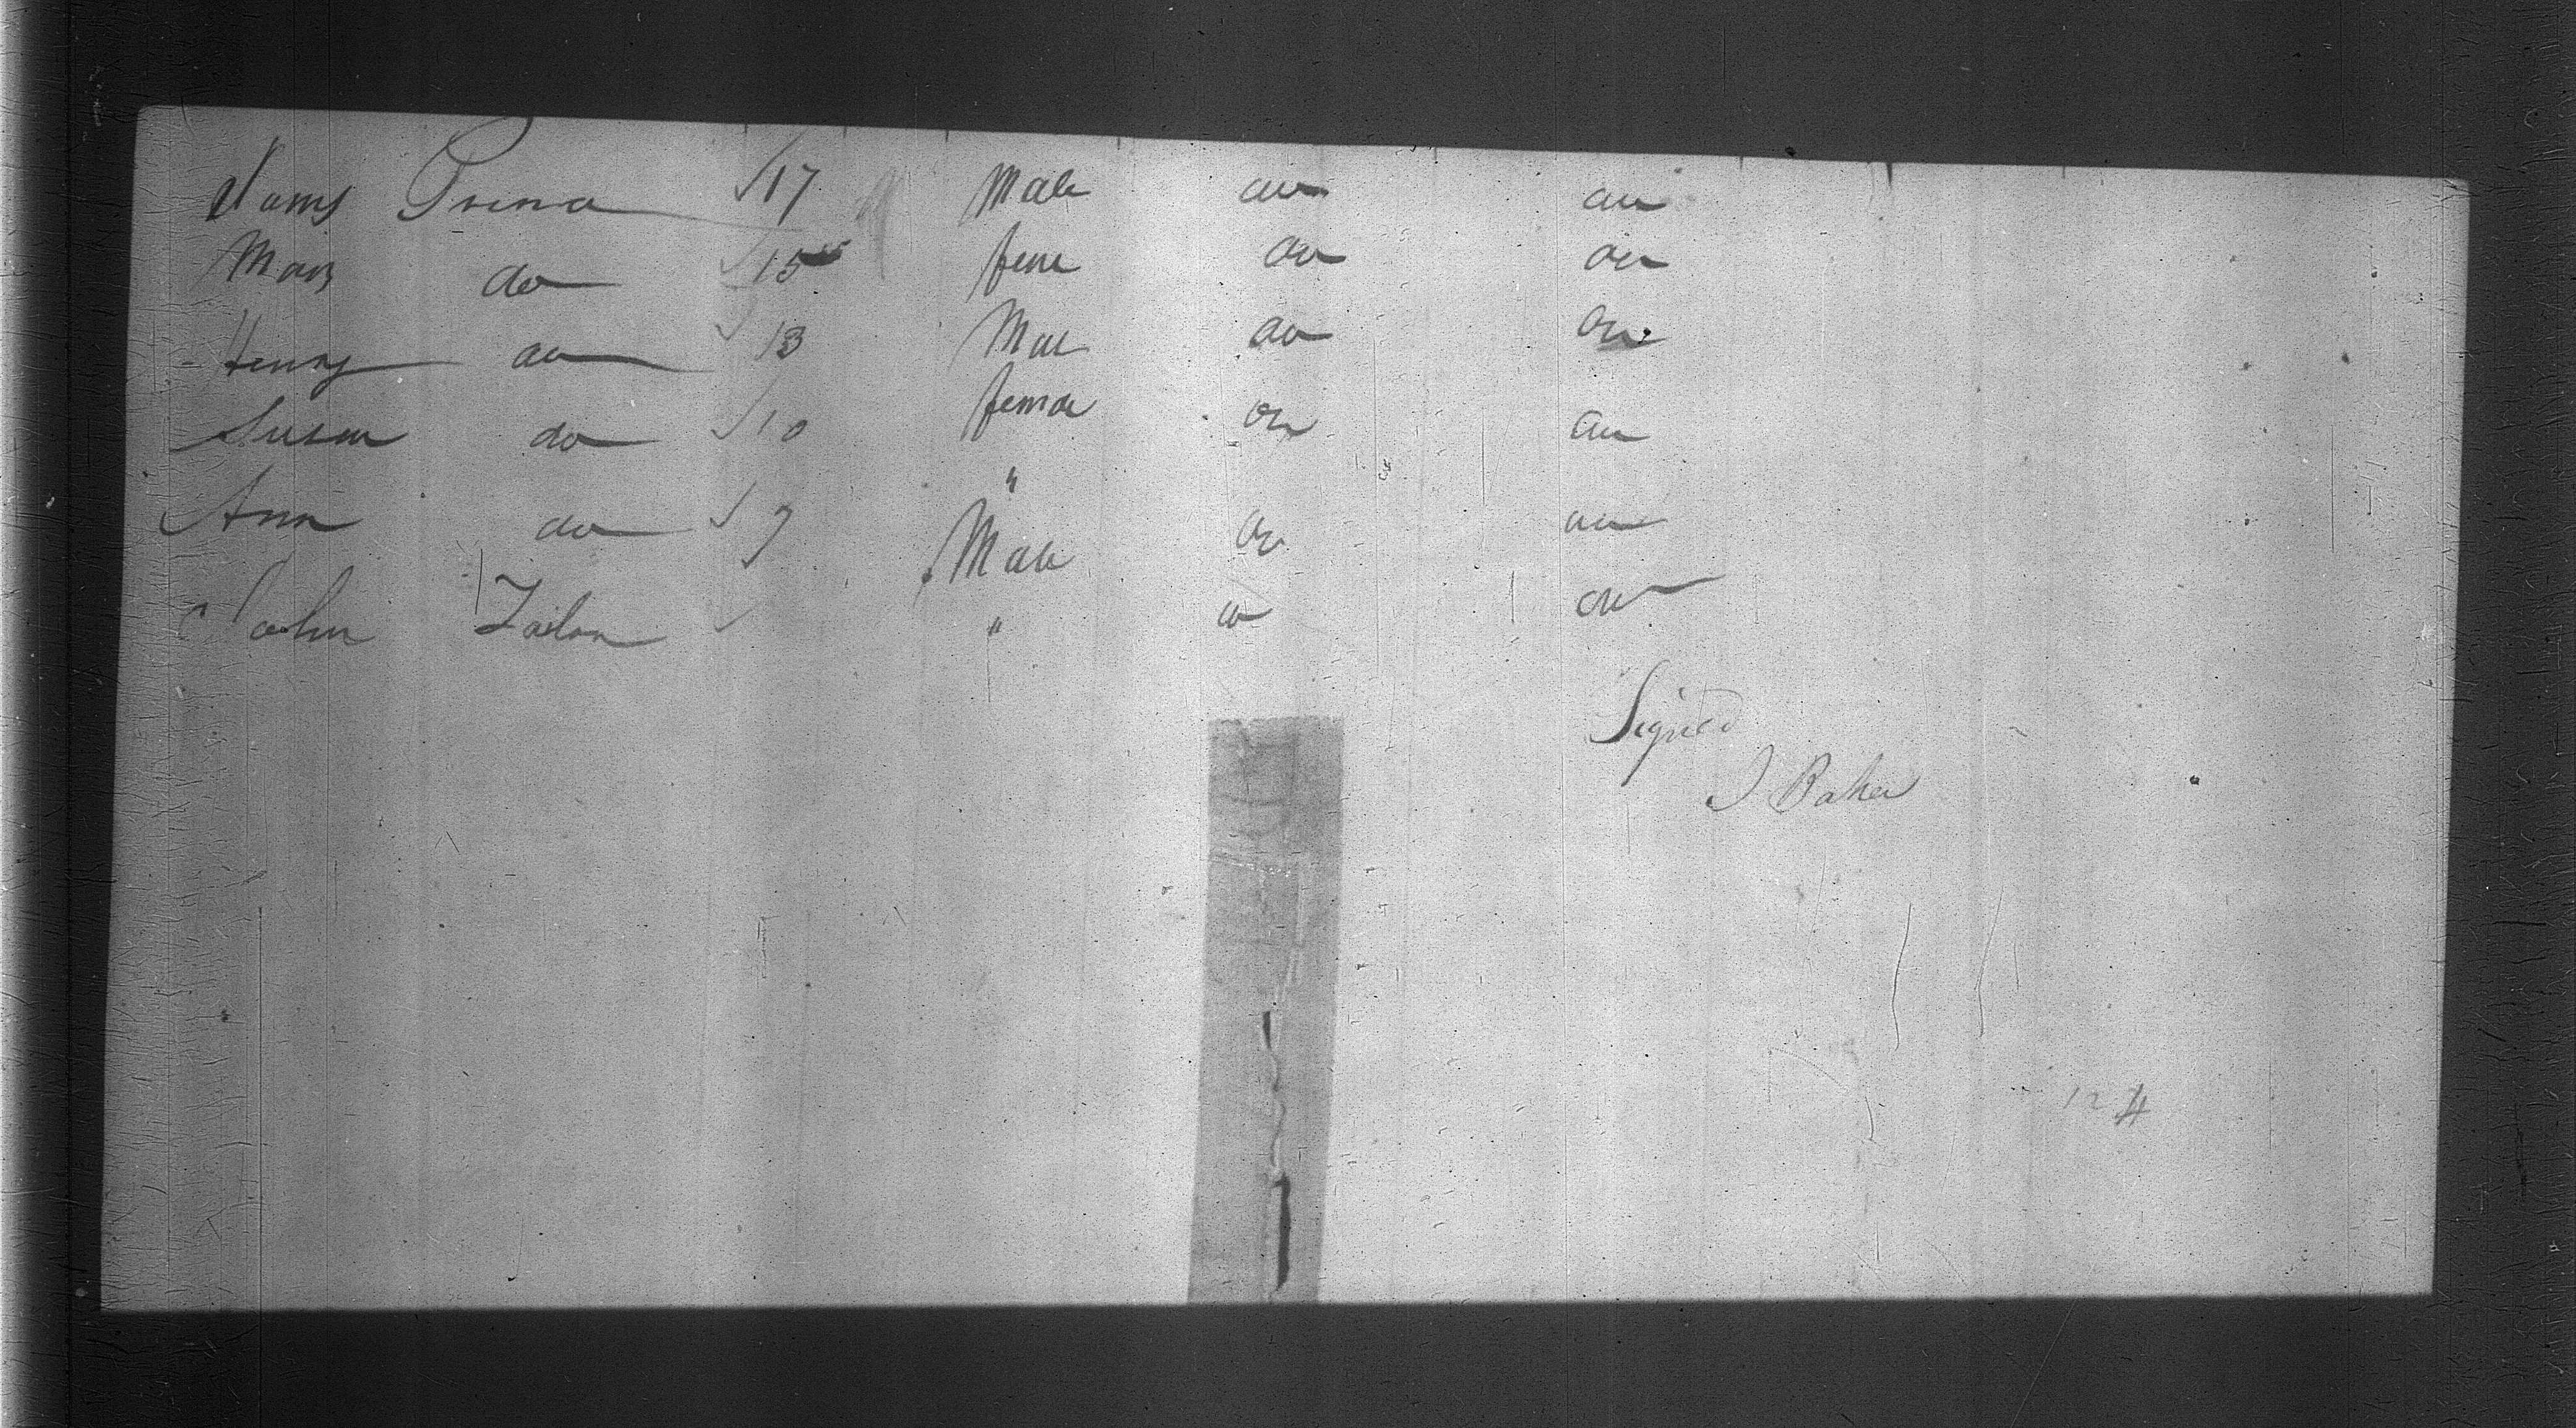 James Prima 17 Male do do
Mary do 15 feme do do
Henry do 13 Male do do
Susan do 10 female do do
Ann do 7 " do do
Male
John Tailor " do do
Signed
J Baker
124